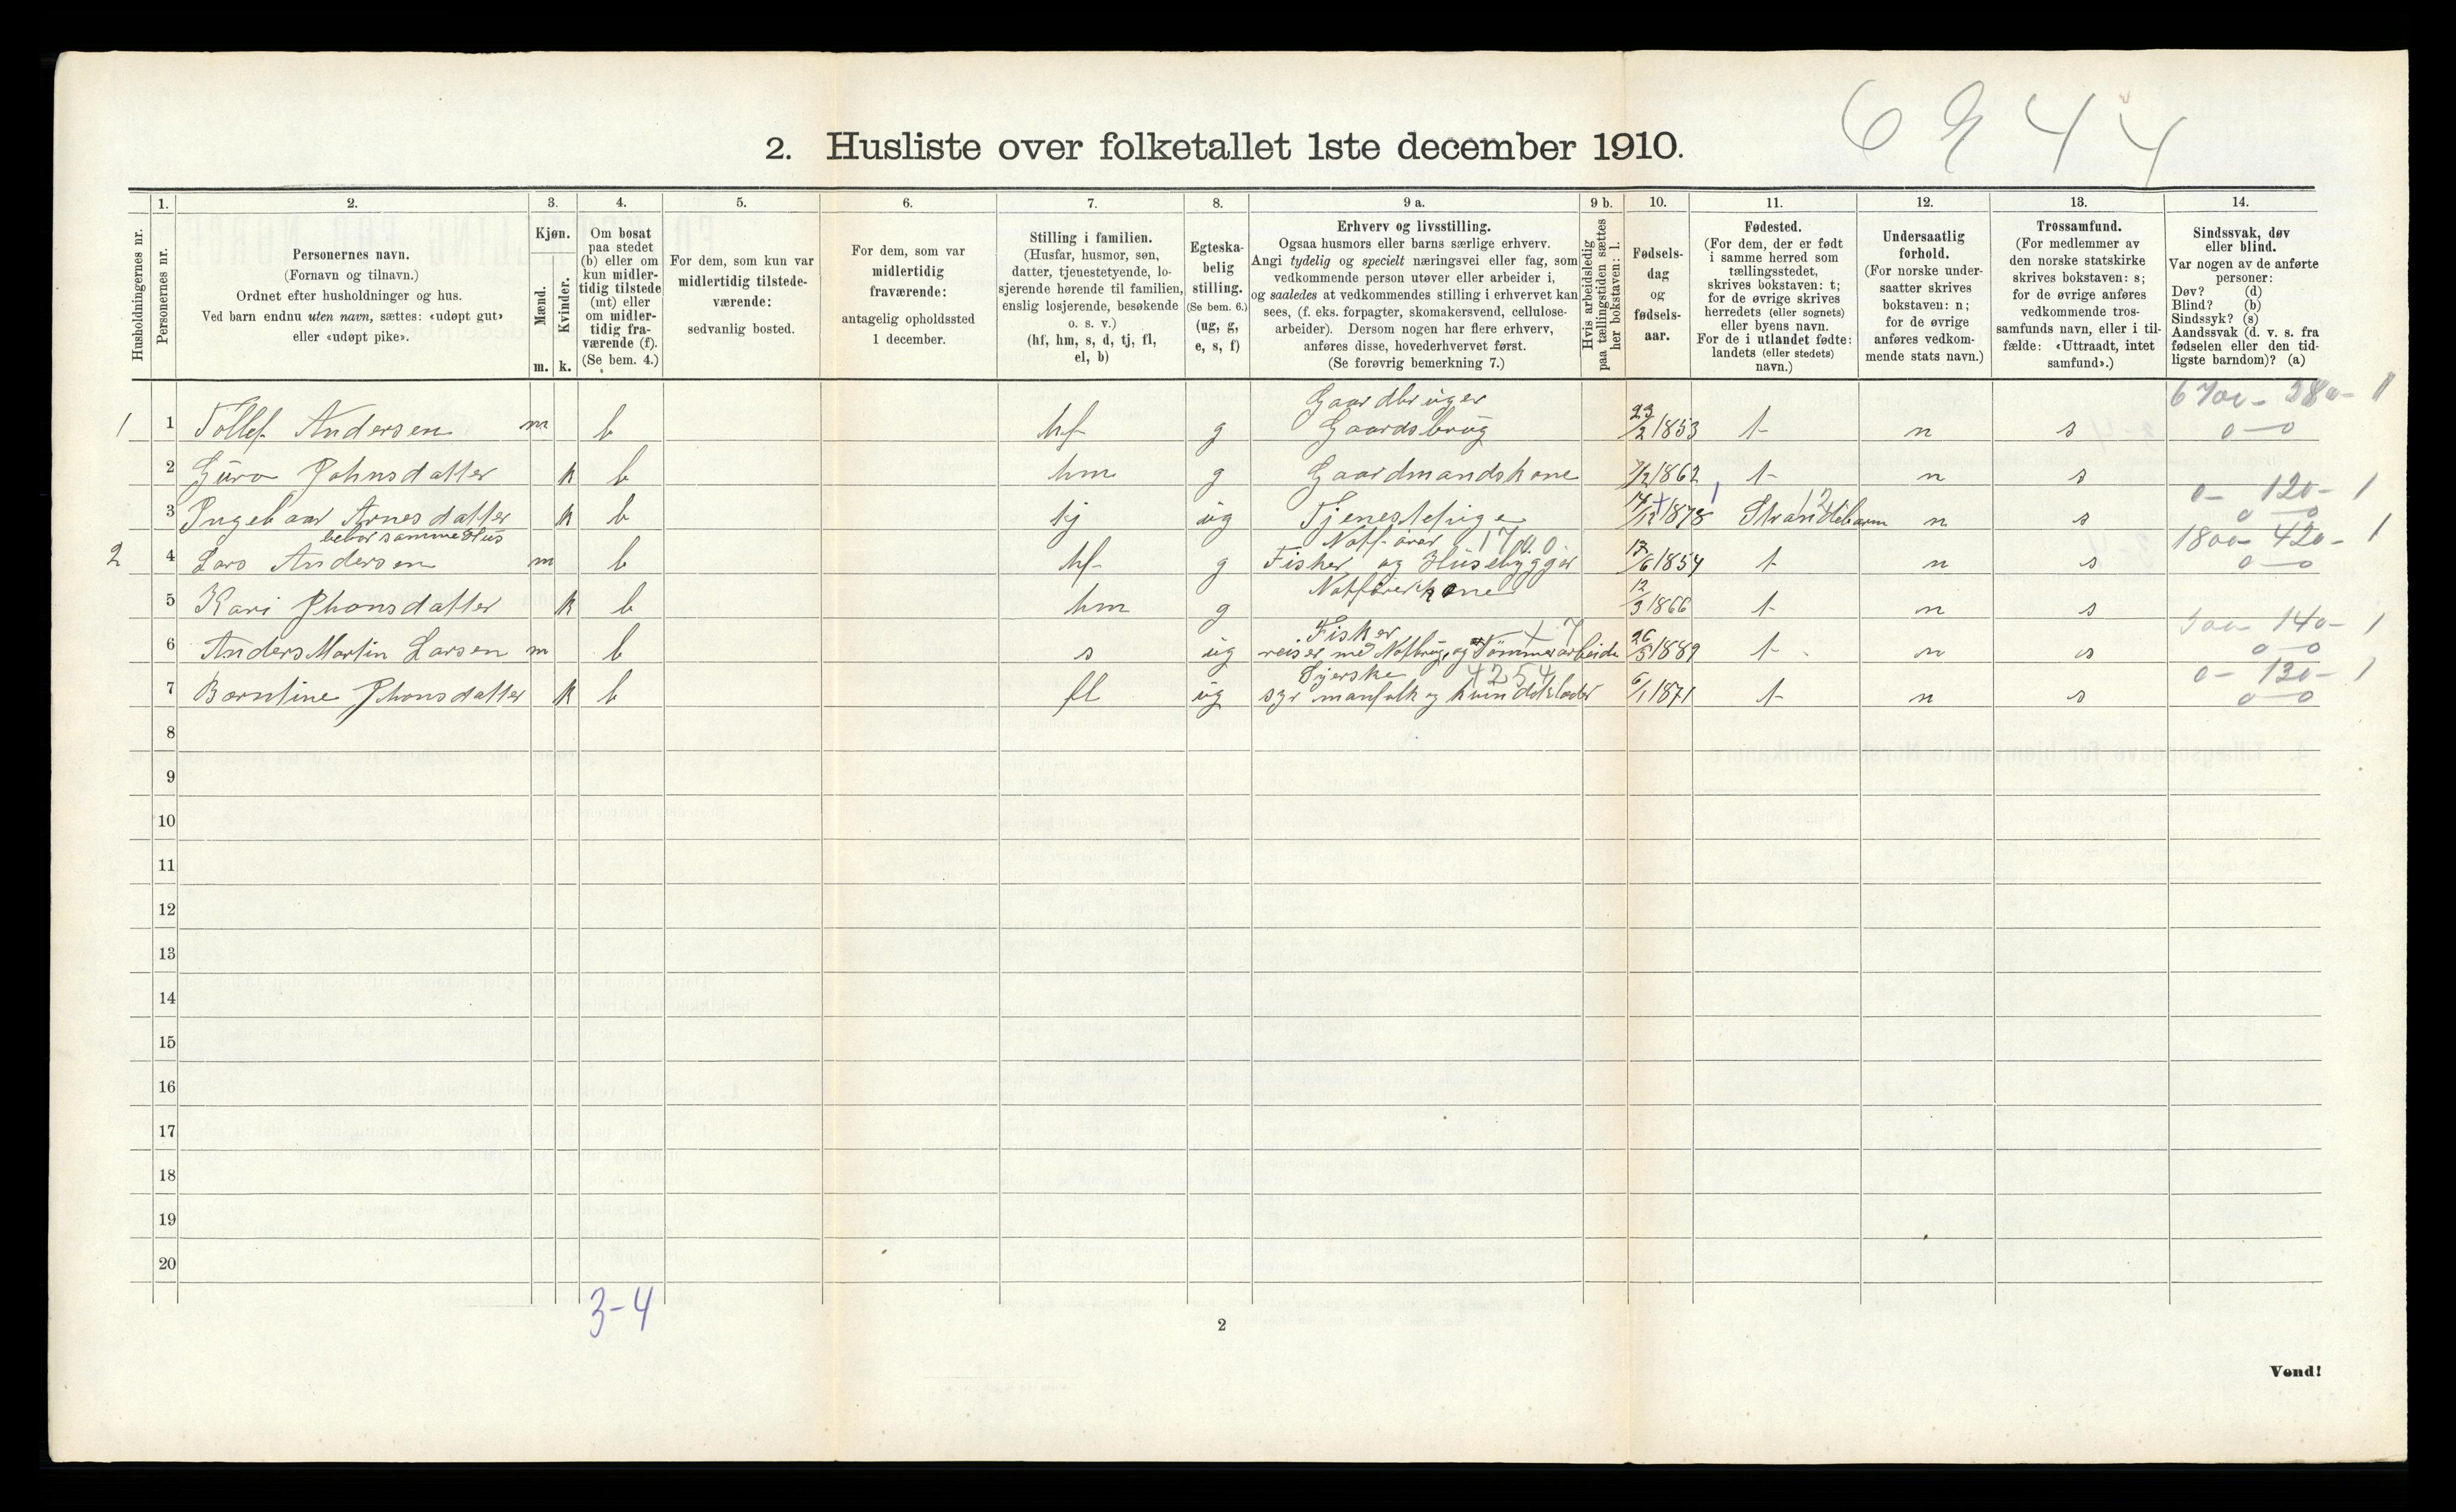 6 2 4 4
2. Husliste over folketallet 1ste december 1910.
Husholdningernes nr.
1.
Personernes nr.
2.
Personernes navn.
(Fornavn og tilnavn.)
Ordnet efter husholdninger og hus.
Ved barn endnu uten navn, sættes: «udøpt gut»
eller «udøpt pike».
3.
Kjøn.
Mænd.
Kvinder.
m. k.
4.
Om bosat
paa stedet
(b) eller om
kun midler-
tidig tilstede
(mt) eller
om midler-
tidig fra-
værende (f).
(Se bem. 4.)
5.
For dem, som kun var
midlertidig tilstede-
værende:
sedvanlig bosted.
6.
For dem, som var
midlertidig
fraværende:
antagelig opholdssted
1 december.
7.
Stilling i familien.
(Husfar, husmor, søn,
datter, tjenestetyende, lo-
sjerende hørende til familien,
enslig losjerende, besøkende
o. s. v.)
(hf, hm, s, d, tj, fl,
el, b)
8.
Egteska-
belig
stilling.
(Se bem. 6.)
(ug, g,
e, s, f)
9 a.
Erhverv og livsstilling.
Ogsaa husmors eller barns særlige erhverv.
Angi tydelig og specielt næringsvei eller fag, som
vedkommende person utøver eller arbeider i,
og saaledes at vedkommendes stilling i erhvervet kan
sees, (f. eks. forpagter, skomakersvend, cellulose-
arbeider). Dersom nogen har flere erhverv,
anføres disse, hovederhvervet først.
(Se forøvrig bemerkning 7.)
9 b.
Hvis arbeidsledig
paa tællingstiden sættes
her bokstaven: l.
10.
Fødsels-
dag
og
fødsels-
aar.
11.
Fødested.
(For dem, der er født
i samme herred som
tællingsstedet,
skrives bokstaven: t;
for de øvrige skrives
herredets (eller sognets)
eller byens navn.
For de i utlandet fødte:
landets (eller stedets)
navn.)
12.
Undersaatlig
forhold.
(For norske under-
saatter skrives
bokstaven: n;
for de øvrige
anføres vedkom-
mende stats navn.)
13.
Trossamfund.
(For medlemmer av
den norske statskirke
skrives bokstaven: s;
for de øvrige anføres
vedkommende tros-
samfunds navn, eller i til-
fælde: «Uttraadt, intet
samfund».)
14.
Sindssvak, døv
eller blind.
Var nogen av de anførte
personer:
Døv? (d)
Blind? (b)
Sindssyk? (s)
Aandssvak (d. v. s. fra
fødselen eller den tid-
ligste barndom)? (a)
Gaardbruger 6700 - 380 - 1
1 1 Tollef Andersen m b hf g Gaardsbrug 23/2 1853 t n s 0 - 0
2 Guro Johnsdatter k b hm g Gaardmandskone 7/2 1862 t n s
0 - 120 - 1
3 Ingebaar Arnesdatter k b tj ug Tjenestepige 14/12 1878 Strandebarm 12 n s 0 - 0
bebor samme Hus 1700 1800 - 420 - 1
2 4 Lars Andersen m b hf g Fisker og Husebygger 17/6 1854 t n s 0 - 0
5 Kari Jhonsdatter k b hm g 12/3 1866 t n s
Fisker 140 - 1
6 Anders Martin Larsen m b s ug reiser med Notbrug og Tømmerarbeide 26/5 1889 t n s 0 - 0
Syerske 4254 0 - 130 - 1
7 Berntine Jhonsdatter k b fl ug syr manfolk og kvindeklæder 6/1 1871 t n s 0 - 0
8
9
10
11
12
13
14
15
16
17
18
19
20
3-4
2
Vend!